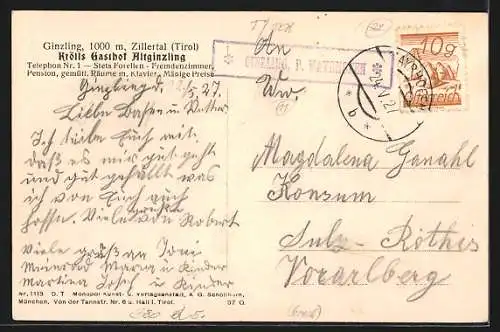 Ginzling, 1000 m, Zillertal (Tirol)
Krölls Gasthof Altginzling
Telephon Nr. 1 — Stets Forellen - Fremdenzimmer,
Pension, gemütl. Räume m. Klavier, Mäsige Preise
Ginzling d. 27.
Liebe Basen u Vetter
Ich teile Euch mit
daß es mir gut geht
und gut gefällt was
ich von Euch auch
hoffe. Viele grüße
von Robert
viele grüß an Toni
Meinrad Maria u Kinder
Martina Josef u Kinder
Nr. 1113 D. T. Monopol Kunst- u. Verlagsanstalt, A. G. Schöllhorn,
München, Von der Tannstr. Nr. 6 u. Hall i. Tirol. 27 G.
An
GINZLING, P. MAYRHOFEN
10g
Magdalena Ganahl
Konsum
Sulz-Röthis
Vorarlberg